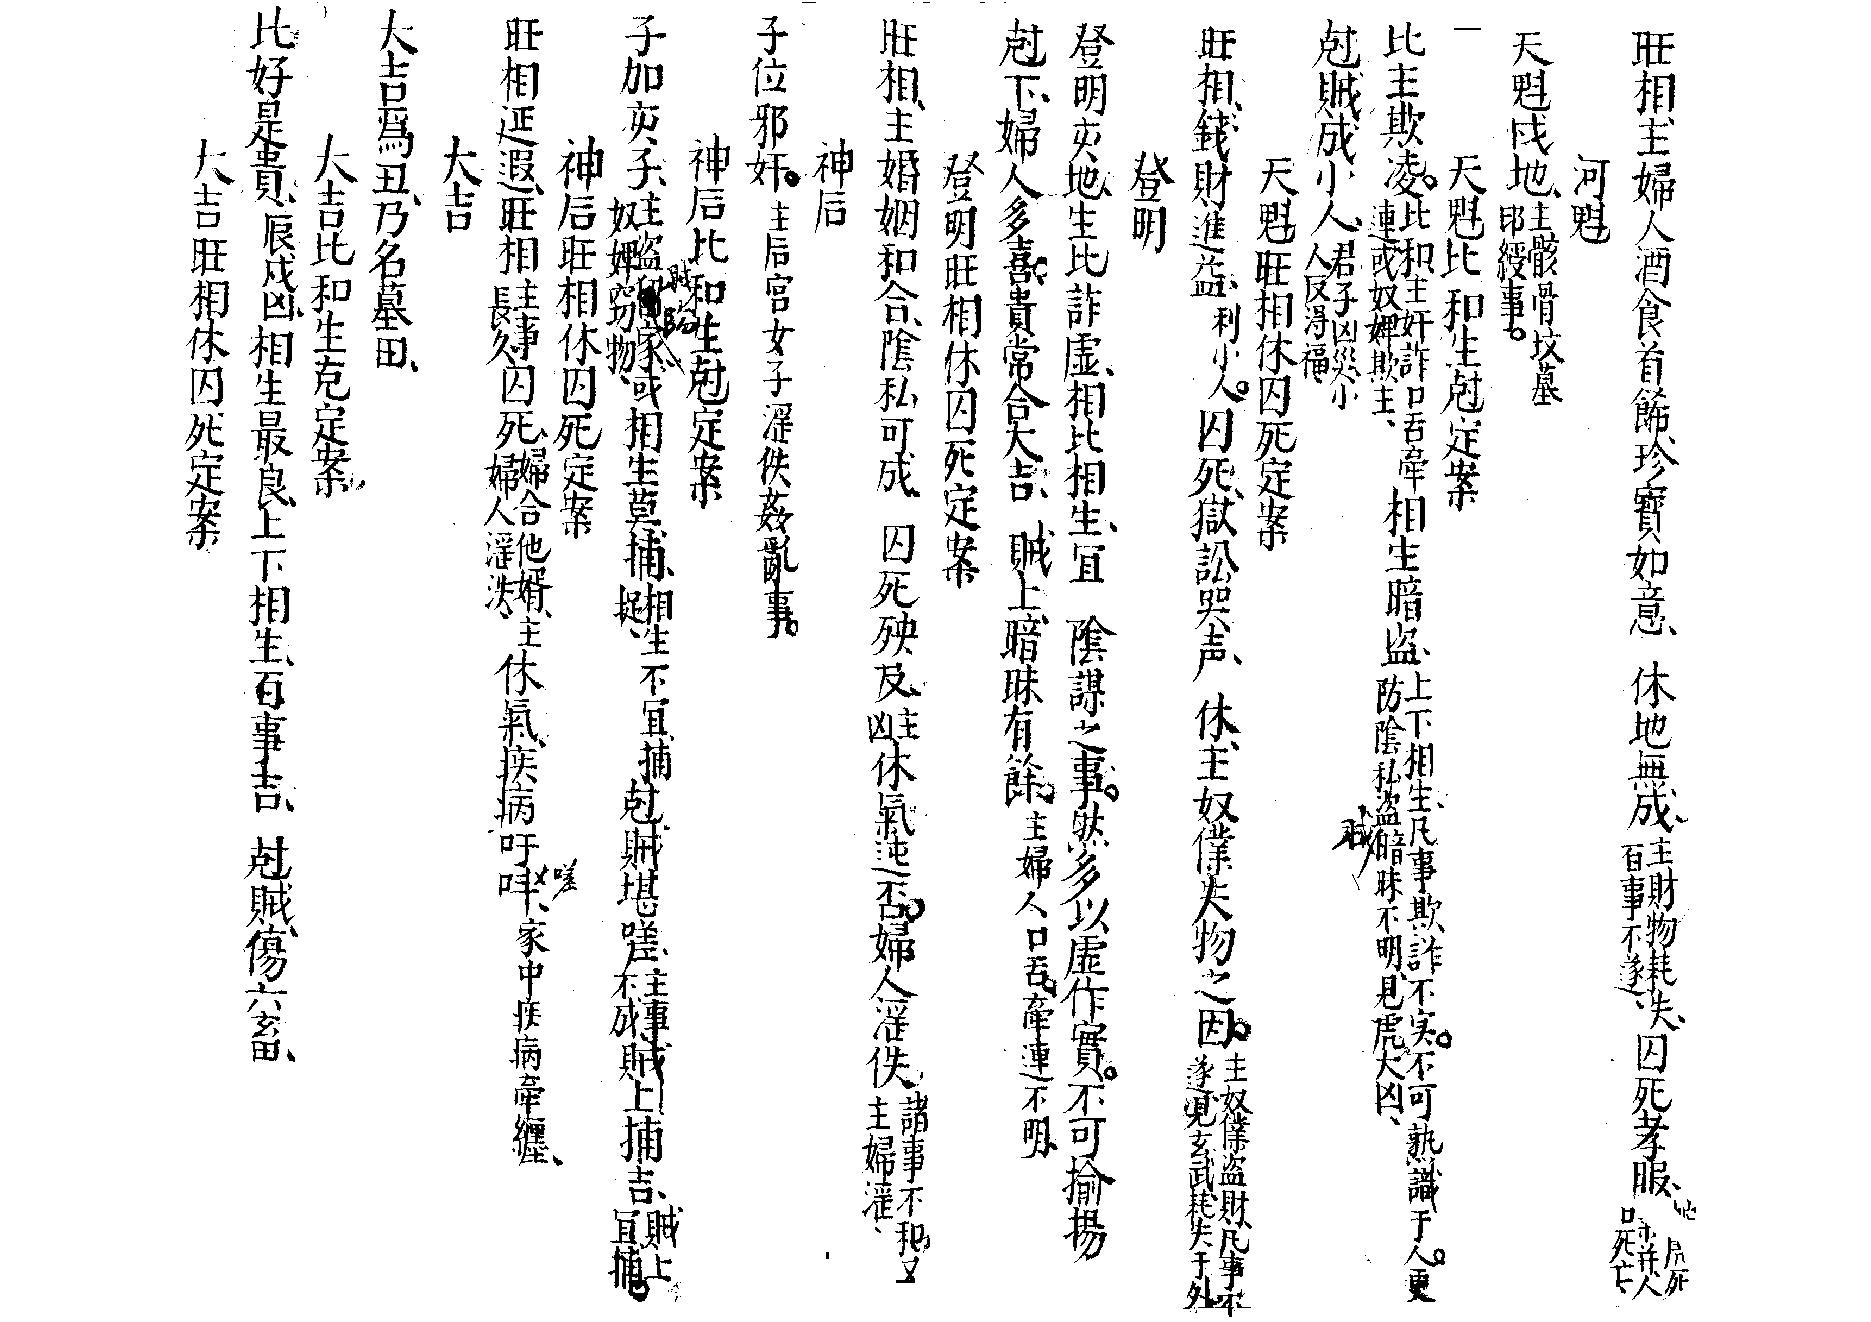 旺相、主婦人酒食首餙、珍寶如意、休地無成、主財物耗失、百事不遂、囚死孝暇、
河魁
天魁戌地、主骸骨坟墓印綬事。
天魁比和生尅定案
比主欺凌。比和主奸詐口舌牽連或奴婢欺主、相生暗盗、上下相生、凡事欺詐不実。不可熟識于人。更防陰私盗賊暗昧不明、見虎大凶、
尅賊成小人、君子凶災小人反淂福、
天魁旺相休囚死定案
旺相、錢財進益、利小人。囚死、獄訟哭声、休、主奴僕失物之因。主奴僕盗財、凡事不遂、見玄武、耗失于外
登明
登明亥地、生比詐虚、相比相生、冝陰謀之事。然多以虚作實。不可揄揚
尅下、婦人多喜、貴常合大吉、賊上、暗昧有餘。主婦人口舌、牽連不明、
登明旺相休囚死定案
旺相、主婚姻和合、陰私可成、囚死殃及、主凶休氣迍否。婦人淫佚、諸事不和、又主婦淫、
神后
子位邪奸。主后宮女子淫佚姦亂事。
神后比和生尅定案
子加亥、子、主盗賊傷家、或奴婢窃物、相生莫捕、相生不冝捕捉、尅賊堪嗟、主事不成、賊上捕吉、賊上冝捕。
神后旺相休囚死定案
旺相延遐、旺相主事長久、囚死、婦合他婿、主婦人淫泆、休氣、疾病吁嗟、家中疾病牽纏、
大吉
大吉爲丑、乃名墓田、
大吉比和生克定案
比好是貴、辰戍凶、相生最良、上下相生、百事吉、尅賊、傷六畜、
大吉旺相休囚死定案